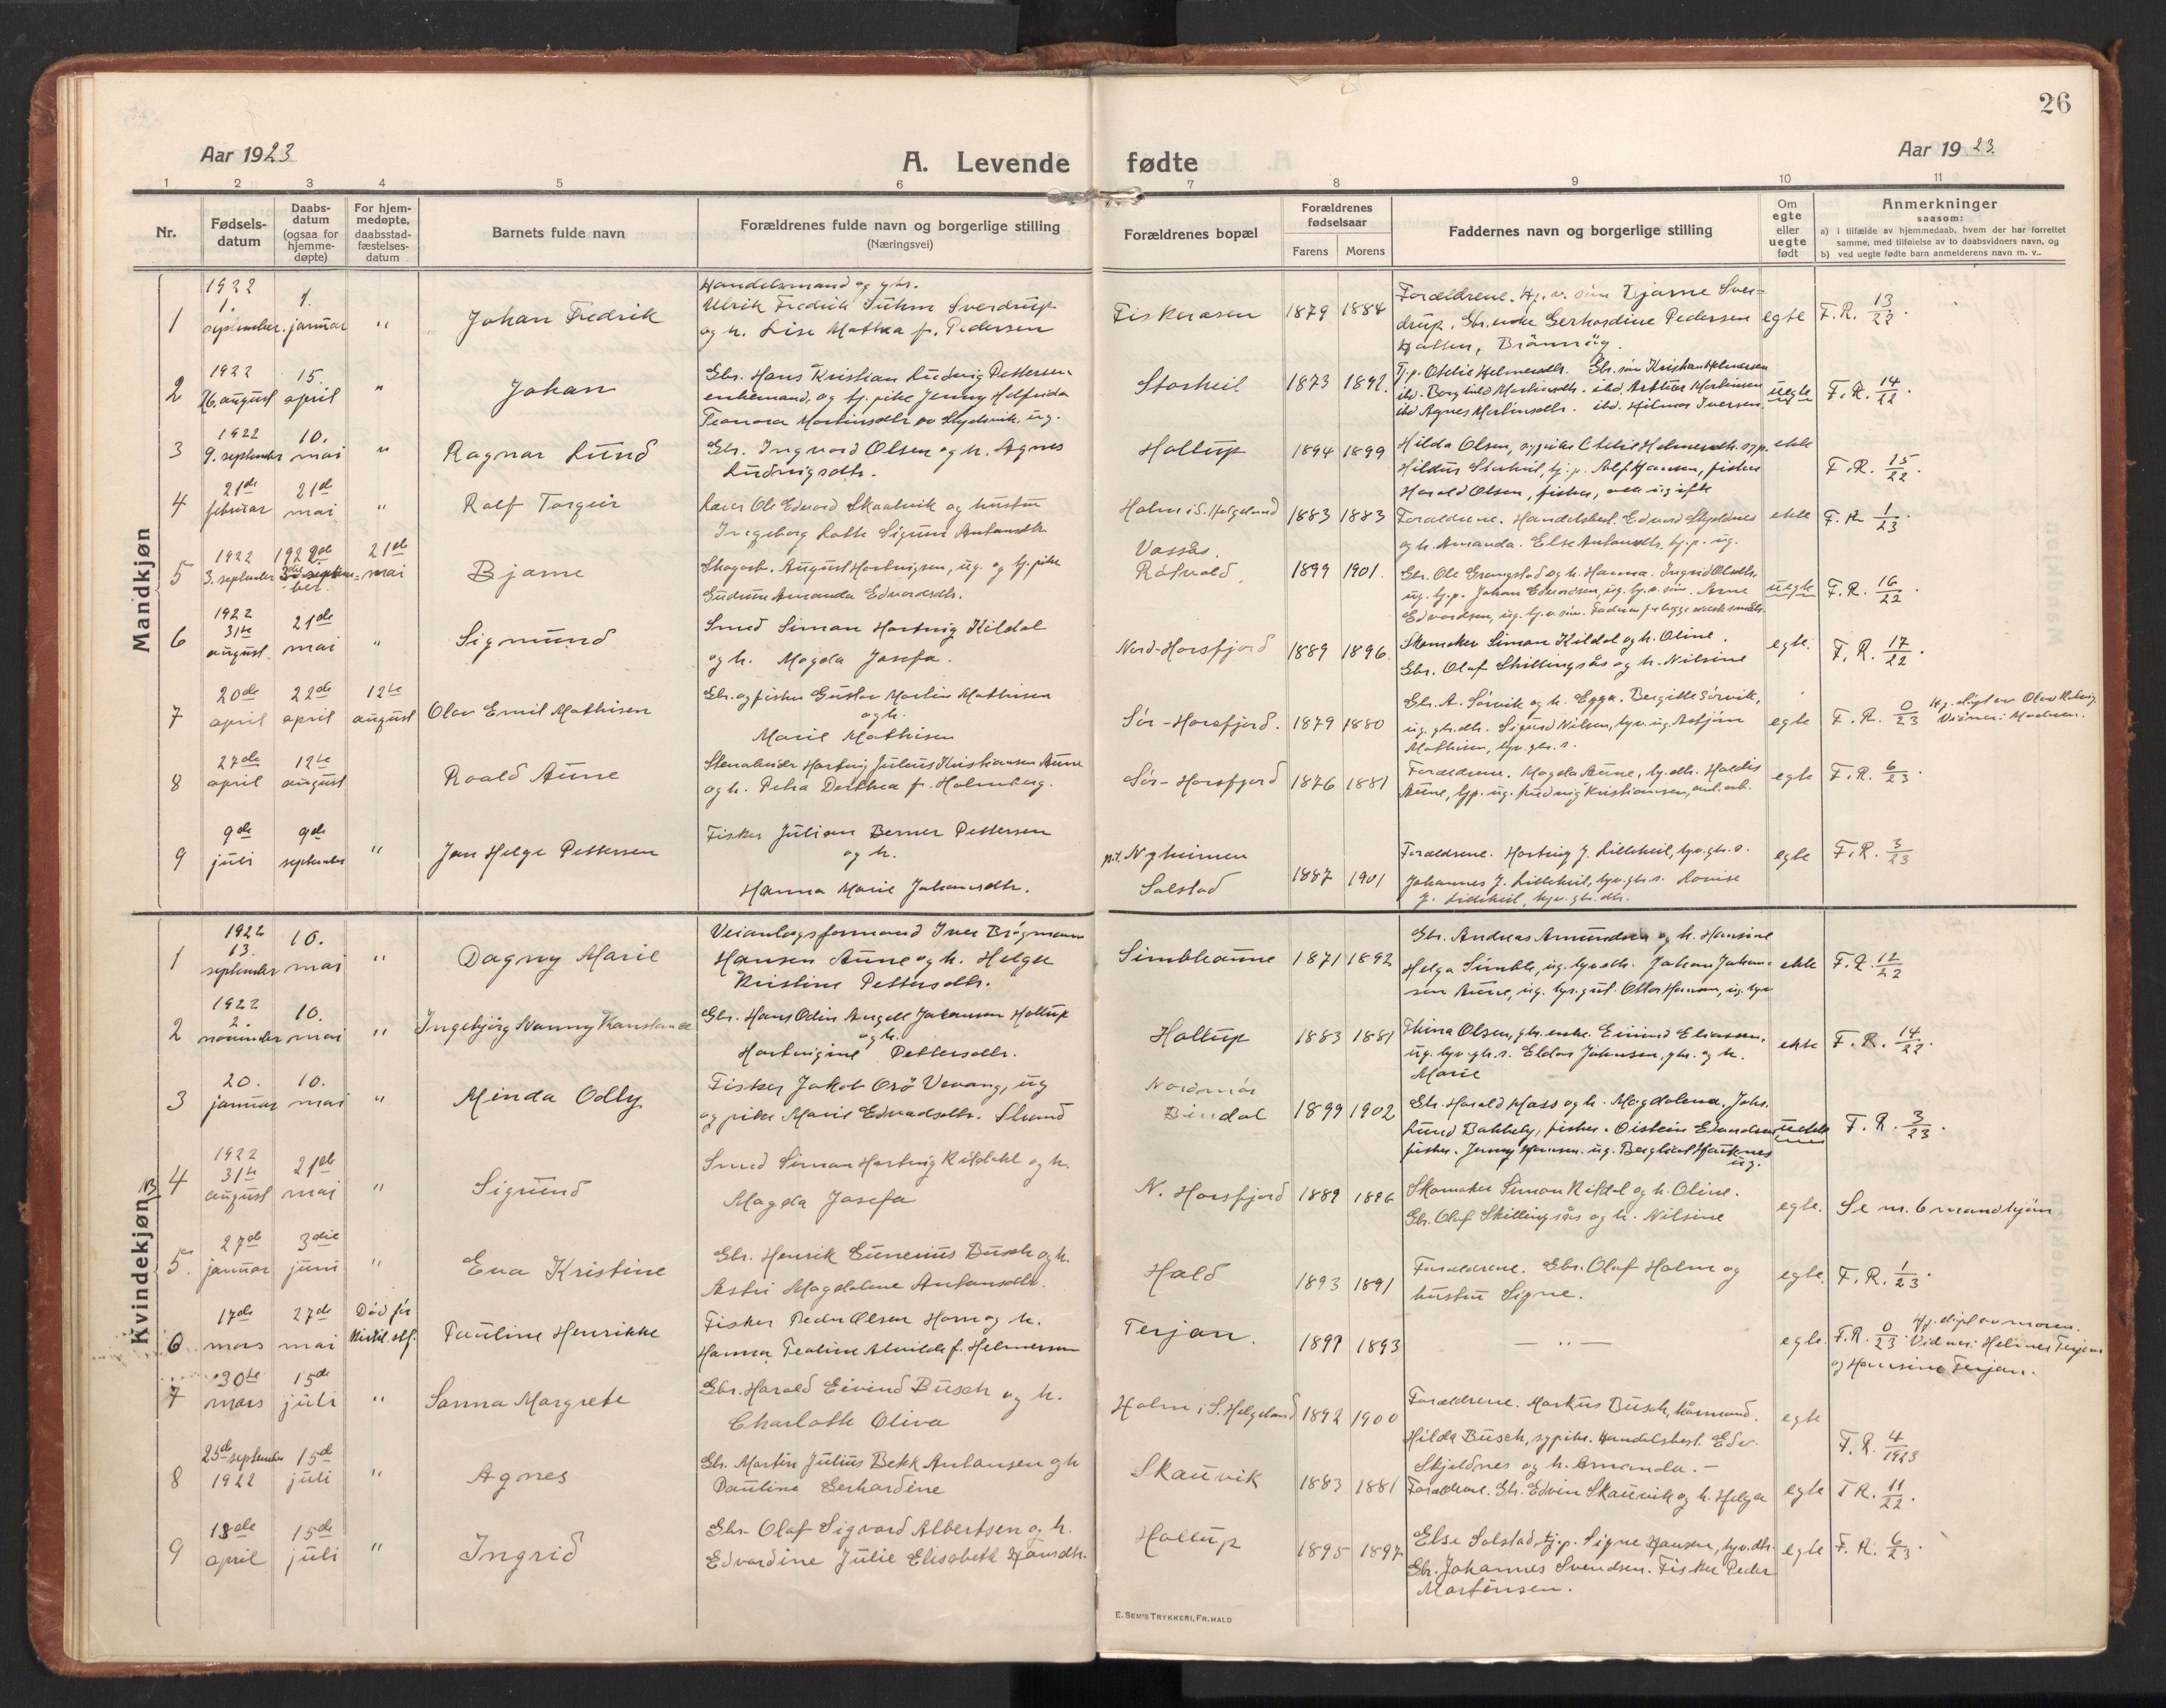 26
Aar 1923
A. Levende fødte
Aar 1923
1 2 3 4 5 6 7 8 9 10 11
Nr.
Fødsels-
datum
Daabs-
datum
(ogsaa for
hjemme-
døpte)
For hjem-
medøpte,
daabsstad-
fæstelses-
datum
Barnets fulde navn
Forældrenes fulde navn og borgerlige stilling
(Næringsvei)
Forældrenes bopæl
Forældrenes
fødselsaar
Farens Morens
Faddernes navn og borgerlige stilling
Om
egte
eller
uegte
født
Anmerkninger
saasom:
a) i tilfælde av hjemmedaab, hvem der har forrettet
samme, med tilføielse av to daabsvidners navn, og
b) ved uegte fødte barn anmelderens navn m. v..
Mandkjøn
1 1922 1. september 1. januar " Johan Fredrik
Handelsmand og gbr.
Ulrik Fredrik Suhm Sverdrup
og h. Lise Mathea f. Pedersen
Fiskerosen 1879 1884
Forældrene. Hj. v. søn Bjarne Sver-
drup. Gbr. enke Gerhardine Pedersen
Halsen, Brønnøy.
egte F. R. 13/22.
2 1922 26. august 15. april " Johan
Gbr. Hans Kristian Ludvig Pettersen
enkemand, og tj. pike Jenny Helfrida
Leonora Martinsdtr ug.
Storheil 1873 1892.
Tj. p. Otelie Helmersdtr. Gbr. søn Kristian Helmersen
ibd. Borghild Martinsdtr. ibd. Arthur Martinsen
ibd Agnes Martinsdtr. ibd. Hilmar Iversen
uegte F. R. 14/22.
3 1922 9. september 10. mai " Ragnar Lund
Gbr. Ingvard Olsen og h. Agnes
Ludvigsdtr.
Holtup 1894 1899
Hilda Olsen, sypike Otelie Helmersdtr. syp.
Hildur Storheil, tj. p. Alf Hansen, fisker
Harald Olsen, fisker, alle ugifte
ekte F. R. 15/22.
4 21de februar 21de mai " Rolf Torgeir
Lærer Ole Edvard Skaalvik og hustru
Ingeborg Lotte Sigrun Antonsdtr.
Holm i S. Helgeland 1883 1883
Forældrene. Handelsbest. Edvard Skjeldnes
og h. Amanda. Else Antonsdtr. tj. p. ug.
ekte F. R. 1/23.
5 1922 3. september 1922 21de mai Bjarne
Skogarb. August Hartvigsen, ug. og tj. pike
Gudrun Amanda Edvardsdtr.
Vassås.
Røtvold 1899 1901.
Gbr. Ole Grangstad og h. Hanna. Ingrid Olsdtr.
ug. tj. p. Johan Edvardsen, ug. tj. v. søn. Arne
Edvardsen, ug. tj. v. søn.
uegte F. R. 16/22.
6 1922 31te august. 21de mai " Sigmund
Smed Simon Hartvig Kildal
og h. Magda Josefa.
Nord-Horsfjord 1889 1896
Skomaker Simon Kildal og h. Oline.
Gbr. Olaf Skillingsås og h. Nilsine
egte. F. R. 17/22.
7 20de april 22de april 12te august Olav Emil Mathisen
Gbr. og fisker Gustav Martin Mathisen
og h.
Marie Mathisen
Sør-Horsfjord. 1879 1880
Gbr. A. Sørvik og h. Egga. Bergitte Sørvik,
ug. gbr. dtr. Sigurd Nilsen, hjv. ug. Asbjørn
Mathisen, hjv. gbr. s.
egte F. R. 0/23
8 27de april 12te august Roald Aune
Stenarbeider Hartvig Julius Kristiansen Aune
og h. Petra Dorthea f. Holmberg.
Sør-Horsfjord 1876 1881
Forældrene. Magda Aune, hj. dtr. Haldis
Aune, hjp. ug. Ludvig Kristiansen, anl. arb.
egte F. R. 6/23.
9 9de juli 9de september " Jan Helge Pettersen
Fisker Julian Berner Pettersen
og h.
Hanna Marie Johansdtr.
p.t. Nyheimen
Solstad 1887 1901
Forældrene. Hartvig J. Lilleheil, hjv. gbr. s.
Johannes J. Lilleheil, hjv. gbr. s. Lovise
J. Lilleheil, hjv. gbr. dtr.
egte F. R. 3/23
Kvindekjøn
1 1922 13. september 10. mai " Dagny Marie
Veianlægsformand Iver Brøgmann
Hansen Aune og h. Helga
Kristine Pettersdtr.
Simbleaune 1871 1892
Gbr. Andreas Amundsen og h. Hansine
Helga Simble, ug. hjv. dtr. Johan Johan-
sen Aune, ug. hjv. gut. Ottar Hansen, ug. hjv
ekte F. R. 12/22
2 1922 2. november 10. mai " Ingebjørg Nanny Konstance
Gbr. Hans Odin Angell Johansen Holtup
og h.
Hartvigine Pettersdtr.
Holtup 1883 1881
Thina Olsen, gbr. enke. Eivind Eliassen,
ug. hjv. gbr. s. Eldor Johansen, gbr. og h.
Marie
ekte F. R. 14/22.
3 20. januar 10. mai " Minda Odly
Fisker Jakob Orø Vevang, ug
og pike Marie Edvardsdtr. Strand
Nordmør
Bindal 1899 1902
Gbr. Harald Hass og h. Magdalena. Johs.
Lund Bakkeby, fisker. Øistein
fisker. Jenny Hansen. ug. Bergliot
ug.
uekte F. R. 3/23.
NB 4 1922 31te august 21de mai " Sigmund
Smed Simon Hartvig Kildahl og h.
Magda Josefa
N. Horsfjord 1889 1896
Skomaker Simon Kildal og h. Oline.
Gbr. Olaf Skillingsås og h. Nilsine
egte. Se nr. 6 mandkjøn
5. 27de januar 3die juni " Eva Kristine
Gbr. Henrik Gunerius Busch og h.
Astri Magdalene Antonsdtr.
Hald 1893 1891
Forældrene. Gbr. Olaf Holm og
hustru Signe.
egte. F. R. 1/23.
6 17de mars 27de mai Død før Pauline Henrikke
Fisker Peder Olsen Horn og h.
Hanna Teoline Alvilde f. Helmersen
Terjan. 1899 1893
— " —
egte. F. R. 0/23. Hj. døpt av moren.
Vidner: Helmer Terjan
og Hansine Terjan.
7 30te mars 15de juli " Sanna Margrete
Gbr. Harald Eivind Busch og h.
Charlotte Oliva
Holm i S. Helgeland 1892 1900
Forældrene. Markus Busch, kårmand.
Hilda Busch, sypike. Handelsbest. Edv.
Skjeldnes og h. Amanda. —
egte F. R. 4/1923
8 25de september 1922 15de juli " Agnes
Gbr. Martin Julius Bekk Antonsen og h
Pauline Gerhardine
Skauvik 1883 1881
Forældrene. Gbr. Edvin Skauvik og h. Helga
egte F R. 11/22.
9 13de april 15de juli " Ingrid
Gbr Olaf Sigvard Albertsen og h.
Edvardine Julie Elisabeth Hansdtr.
Holtup 1895 1897
Else Solstad, tj. p. Signe Hansen, hjv. dtr.
Gbr. Johannes Svendsen. Fisker Peder
Martinsen.
egte F. R. 6/23.
E. SEM'S TRYKKERI, FR. HALD